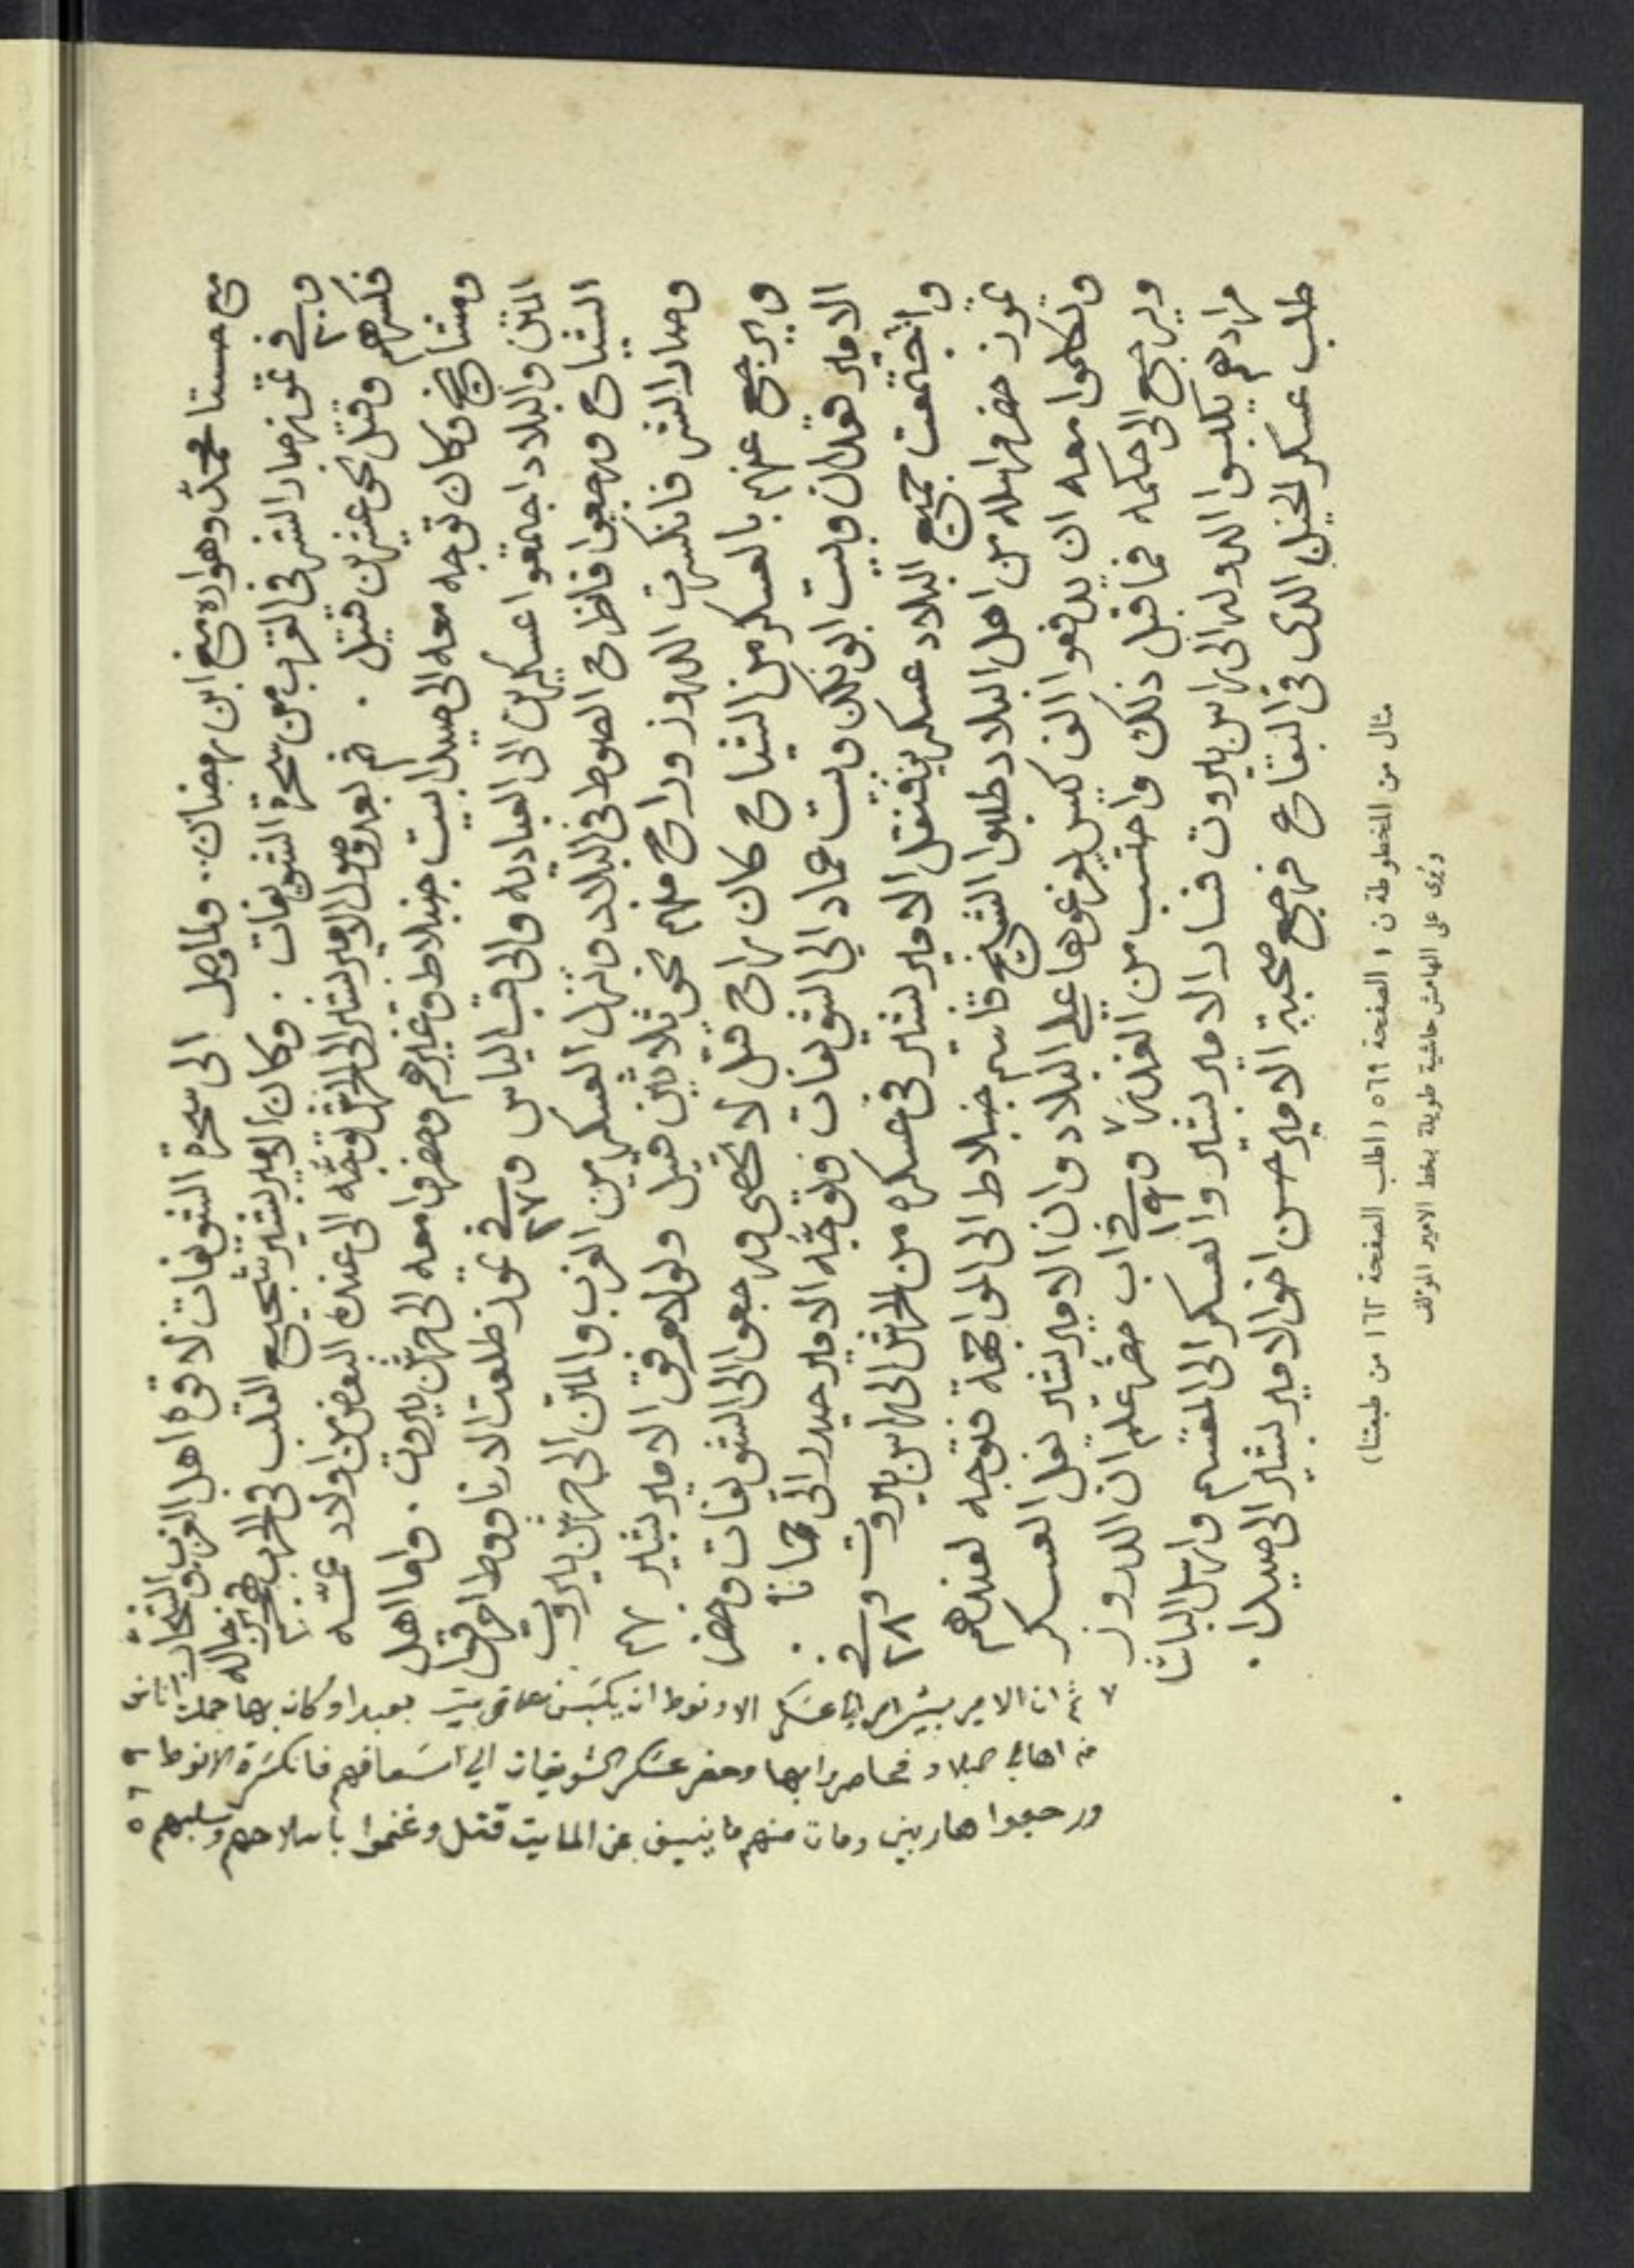 مع مستا محمد وهواره مع ابن رمضان .. ولما وصل الى سحرة الشويفات لاقوه اهل الغرب والشحار
وفي ٢ تموز صار الشر في القرب من سحرة الشويفات . وكان الامير بشير شجيع القلب في الحرب
فكسرهم وقتل نحو عشرين قتيل . ثم بعد وصول الامير بشير الى الحرش توجه الى عنده البعض من اولاد عمه
ومشايخ وكان توجه معه الى صيدا بيت جنبلاط وغيرهم وحضروا معه الى حرش بيروت . واما اهل
المتن والبلاد اجتمعوا عسكرين الى العباديه والى قب الياس وفي ٢٧ تموز طلعت الارناووط
الشياح ورجعوا فاظرح الصوط في البلاد ونزل العسكرين الغرب والمتن الى حرش بيروت
وصار الشر فانكسرت الدروز وراح منهم نحو ثلاثين قتيل ولولا رفق الامير بشير بهم
ويرجع عنهم بالعسكر من الشياح كان راح قتل لا تحصى ورجعوا الى الشويفات وحضر
الامير قعدان وبيت ابو نكد وبيت عماد الي الشويفات فتوجه الامير حيدر الى حمانا .
واجتمعت جميع البلاد عسكرين فنقل الامير بشير في عسكره من الحرش الى راس بيروت وفي ٢٨
تموز حضر مراسله من اهل البلاد طلبوا الشيخ قاسم جنبلاط الى المواجهة فتوجه لعندهم
وتكلموا معه ان يدفعوا الف كيس يوزعوها على البلاد وان الامير بشير يقل العسكر
ويرجع الى حكمه فما قبل ذلك واحتسب من الغدر ٧ وفي ١٩ اب حضر علم ان الدروز
مرادهم يكبسوا الدوله الى راس بيروت فسار الامير بشير والعسكر الى المقسم وارسل الباشا
طلب عسكر الخيل الذي في البقاع فرجع صحبة الامير حسن اخو الامير بشير الى صيدا .
٧ ثم ان الامير بشير امر الى عسكر الارنوط ان يكبس علي بيت بعبدا وكان بها جملة اناس
من اهالي البلاد فحاصروا بها وحضر عسكر الشويفات الي اسعافهم فانكسرة الارنوط
ورجعوا هاربين ومات منهم ما ينيف عن المايت قتل وغنموا باسلاحهم وسلبهم
٥٦٩
مثال من المخطوطة ن ١ الصفحة ٥٦٩ (اطلب الصفحة ١٦٢ من طبعتنا)
ويُرى على الهامش حاشية طويلة بخط الامير المؤلف